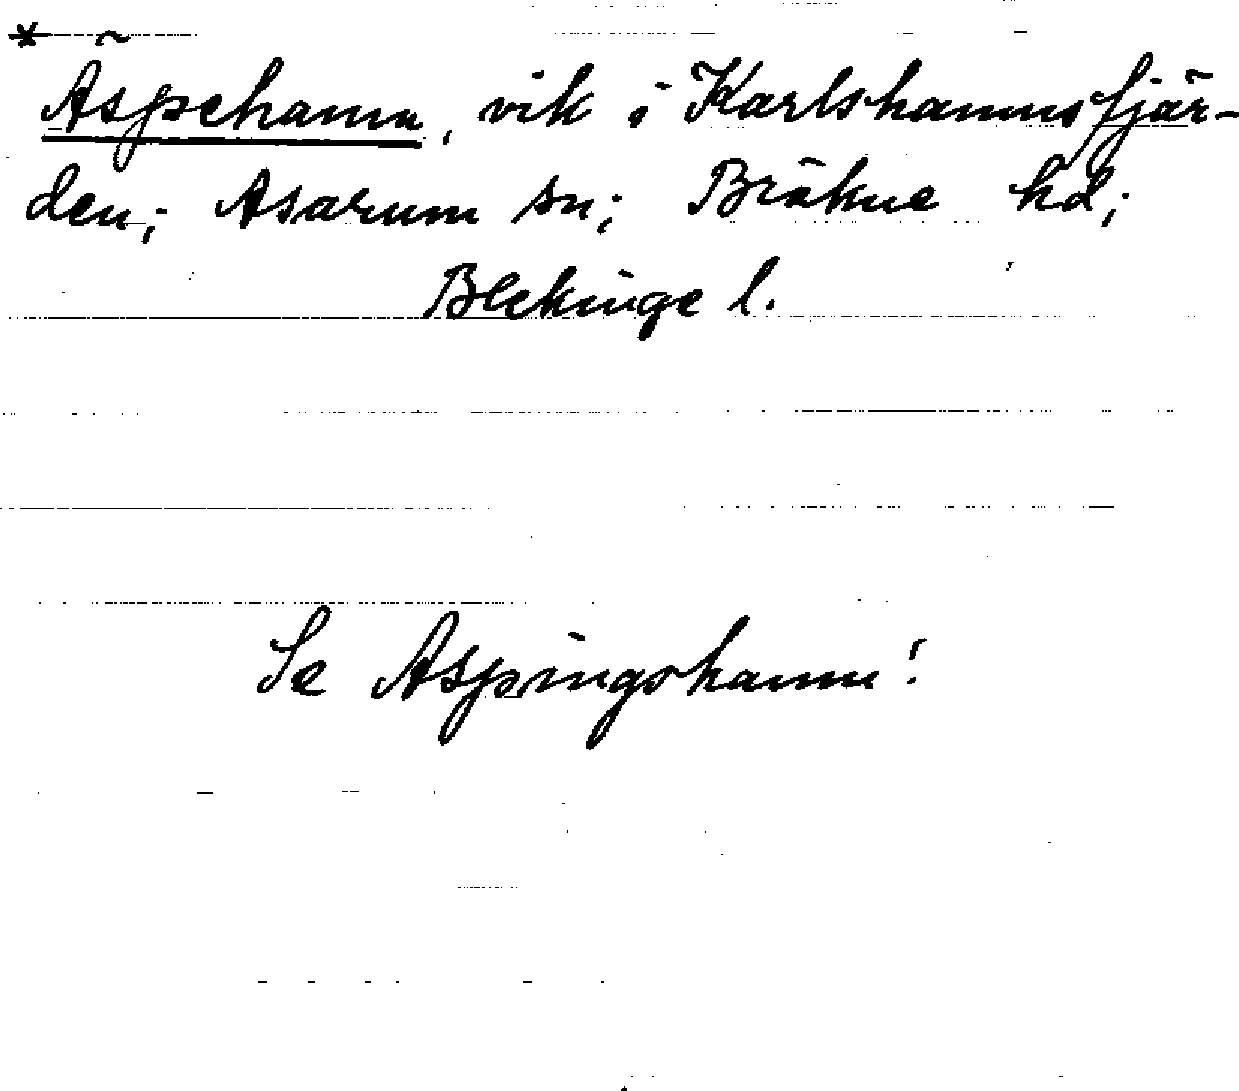 * Äspehamn, vik i Karlshamnsfjär-
den; Asarum sn; Bräkne hd;
Blekinge l.
Se Aspingshamn!